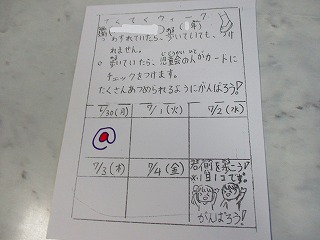 わすれていたら、歩いていても、
れません。
○ 歩いていたら、児童会の人がカードに
じどうかい ひと
チェックをつけます。
たくさんあつめられるようにがんばろう!
6/30(月) 7/1(火) 7/2(水)
@
7/3(木) 7/4(金) 右側を歩こう!
※1日1コです。
がんばろう!